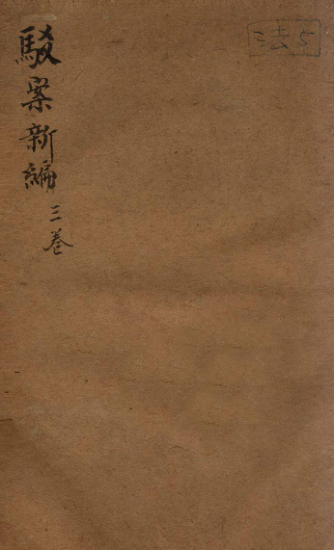 駁案新編 三卷
法5